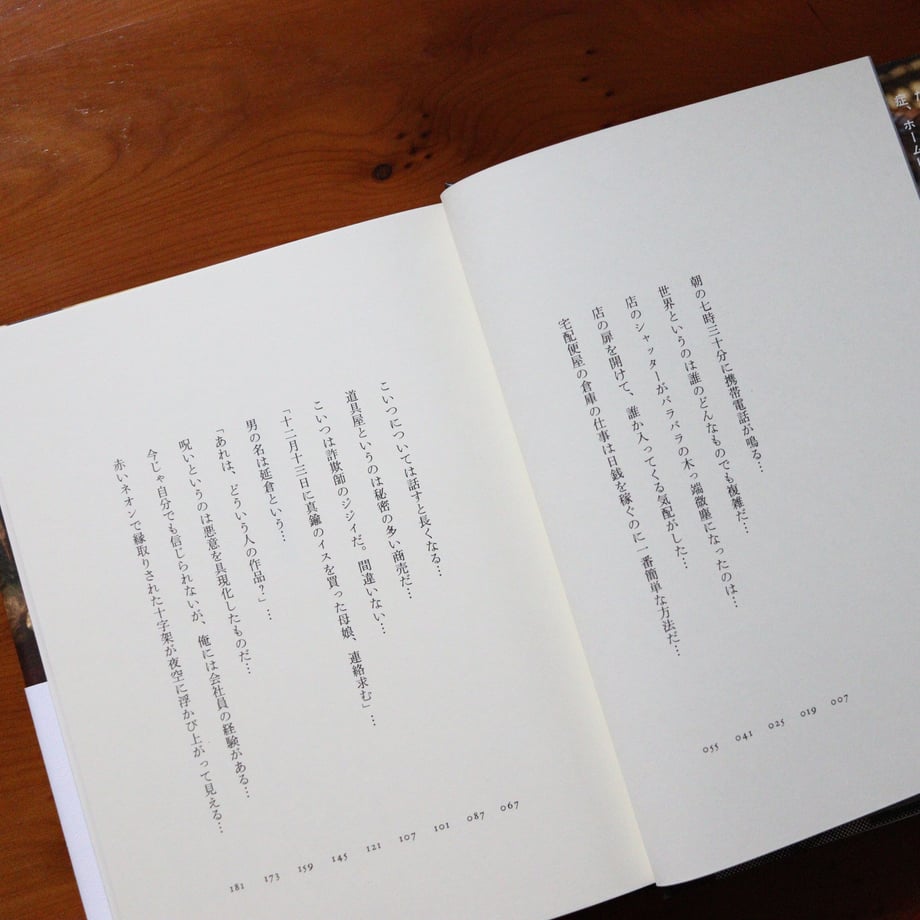 朝の七時三十分に携帯電話が鳴る… 007
世界というのは誰のどんなものでも複雑だ… 019
店のシャッターがバラバラの木っ端微塵になったのは… 025
店の扉を開けて、誰か入ってくる気配がした… 041
宅配便屋の倉庫の仕事は日銭を稼ぐのに一番簡単な方法だ… 055
こいつについては話すと長くなる… 067
道具屋というのは秘密の多い商売だ… 087
こいつは詐欺師のジジイだ。間違いない… 101
「十二月十三日に真鍮のイスを買った母娘、連絡求む」… 107
男の名は延倉という… 121
「あれは、どういう人の作品？」… 145
呪いというのは悪意を具現化したものだ… 159
今じゃ自分でも信じられないが、俺には会社員の経験がある… 173
赤いネオンで縁取りされた十字架が夜空に浮かび上がって見える… 181
症、ホーム